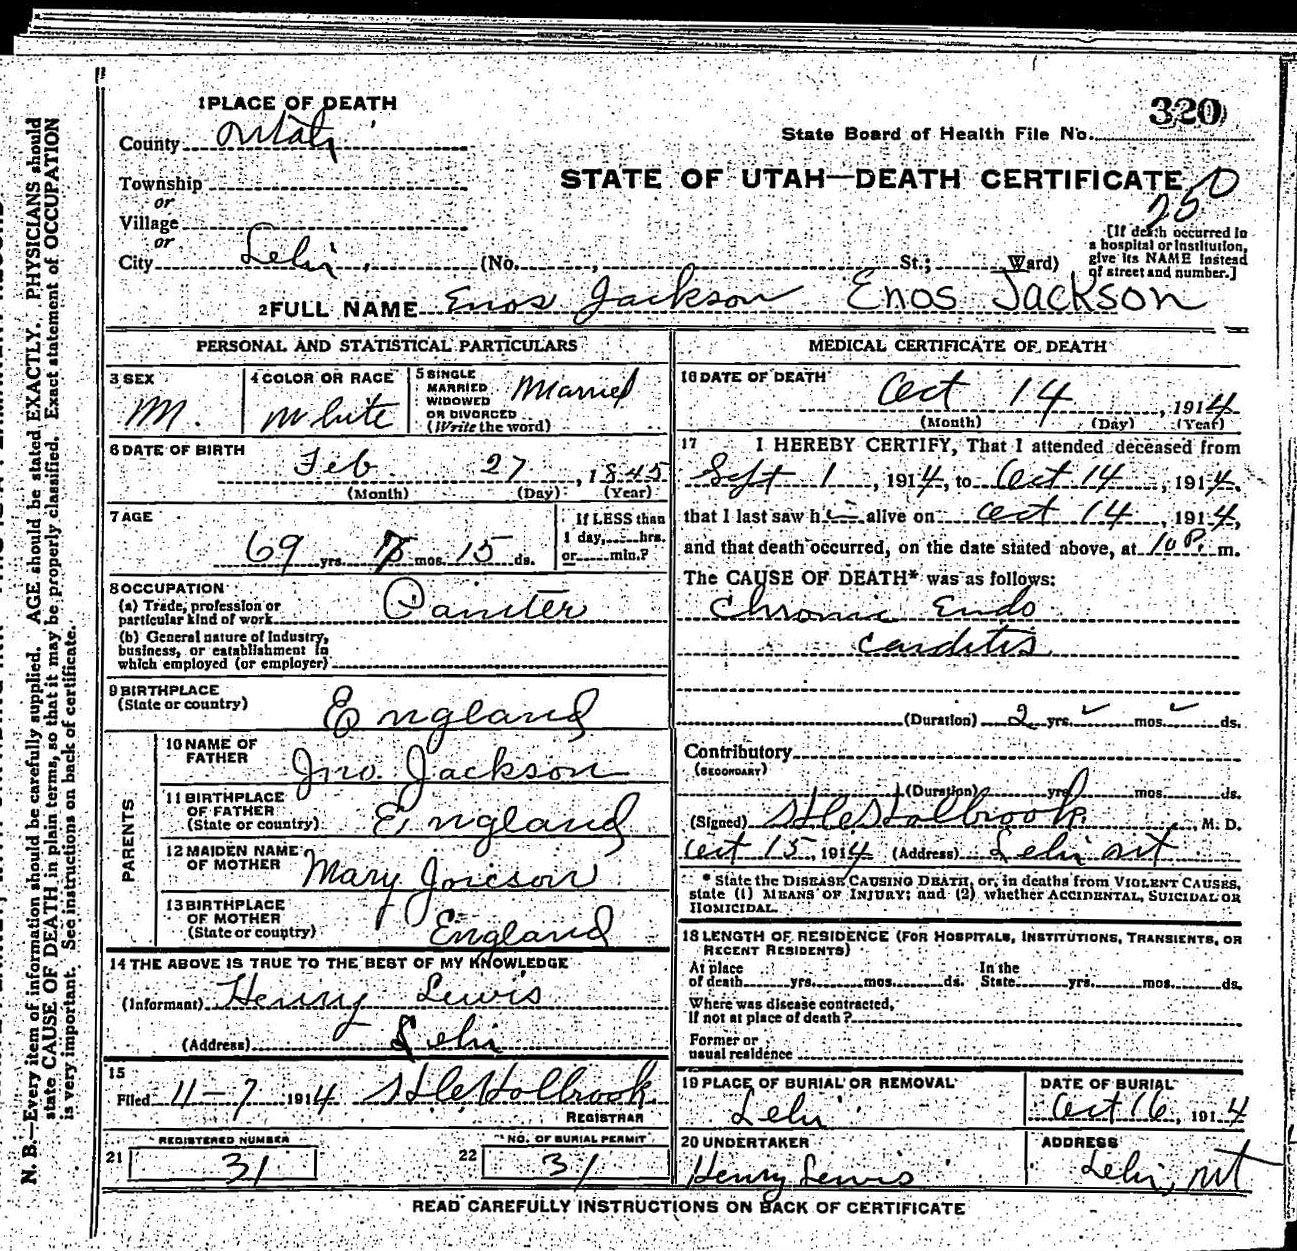 320
1 PLACE OF DEATH
County Utah
State Board of Health File No.
STATE OF UTAH—DEATH CERTIFICATE
250
Township
or
Village
or
City Lehi (No. , St.; Ward)
[If death occurred in
a hospital or institution,
give its NAME instead
of street and number.]
2 FULL NAME Enos Jackson Enos Jackson
PERSONAL AND STATISTICAL PARTICULARS
3 SEX
M.
4 COLOR OR RACE
White
5 SINGLE
MARRIED
WIDOWED
OR DIVORCED
(Write the word)
Married
6 DATE OF BIRTH
Feb. 27, 1845
(Month) (Day) (Year)
7 AGE
69 yrs. mos. 15 ds.
If LESS than
1 day, hrs.
or min.?
8 OCCUPATION
(a) Trade, profession or
particular kind of work Paniter
(b) General nature of Industry,
business, or establishment in
which employed (or employer)
9 BIRTHPLACE
(State or country) England
PARENTS
10 NAME OF
FATHER Jno. Jackson
11 BIRTHPLACE
OF FATHER
(State or country) England
12 MAIDEN NAME
OF MOTHER Mary
13 BIRTHPLACE
OF MOTHER
(State or country) England
14 THE ABOVE IS TRUE TO THE BEST OF MY KNOWLEDGE
(Informant) Henry Lewis
(Address) Lehi
15
Filed 11-7 1914 Holbrook
REGISTRAR
REGISTERED NUMBER
21 31
NO. OF BURIAL PERMIT
22 31
MEDICAL CERTIFICATE OF DEATH
16 DATE OF DEATH
Oct 14, 1914
(Month) (Day) (Year)
17 I HEREBY CERTIFY, That I attended deceased from
Sept 1, 1914, to Oct 14, 1914,
that I last saw h alive on Oct 14, 1914,
and that death occurred, on the date stated above, at 10 P. m.
The CAUSE OF DEATH* was as follows:
Chronic Endo
carditis
(Duration) 2 yrs. mos. ds.
Contributory
(SECONDARY)
(Duration) yrs. mos. ds.
(Signed) Holbrook, M. D.
Oct 15, 1914 (Address) Lehi Ut
* State the DISEASE CAUSING DEATH, or, in deaths from VIOLENT CAUSES,
state (1) MEANS OF INJURY; and (2) whether ACCIDENTAL, SUICIDAL OR
HOMICIDAL.
18 LENGTH OF RESIDENCE (FOR HOSPITALS, INSTITUTIONS, TRANSIENTS, OR
RECENT RESIDENTS)
At place
of death yrs. mos. ds.
In the
State yrs. mos. ds.
Where was disease contracted,
If not at place of death?
Former or
usual residence
19 PLACE OF BURIAL OR REMOVAL
Lehi
DATE OF BURIAL
Oct 16, 1914
20 UNDERTAKER
Henry Lewis
ADDRESS
Lehi, Ut
READ CAREFULLY INSTRUCTIONS ON BACK OF CERTIFICATE
N. B.—Every item of information should be carefully supplied. AGE should be stated EXACTLY. PHYSICIANS should
state CAUSE OF DEATH in plain terms, so that it may be properly classified. Exact statement of OCCUPATION
is very important. See instructions on back of certificate.